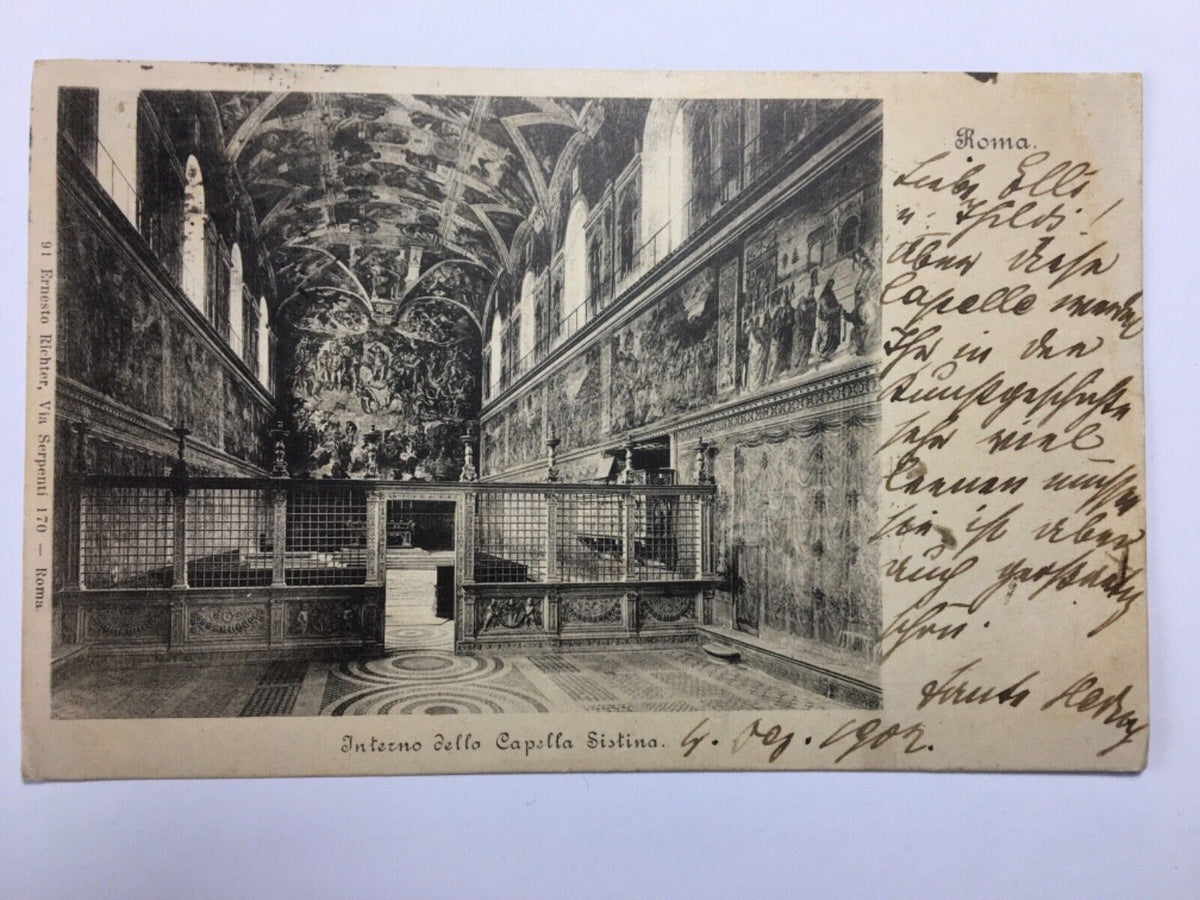 91 Ernesto Richter, Via Serpenti 170 — Roma.
Roma.
Liebe Elli
u. Thildi!
Über diese
Capelle werdet
Ihr in der
Kunstgeschichte
sehr viel
lernen müssen
sie ist aber
auch großartig
schön.
Tante Hedwig
Interno dello Capella Sistina.
4. Dez. 1902.